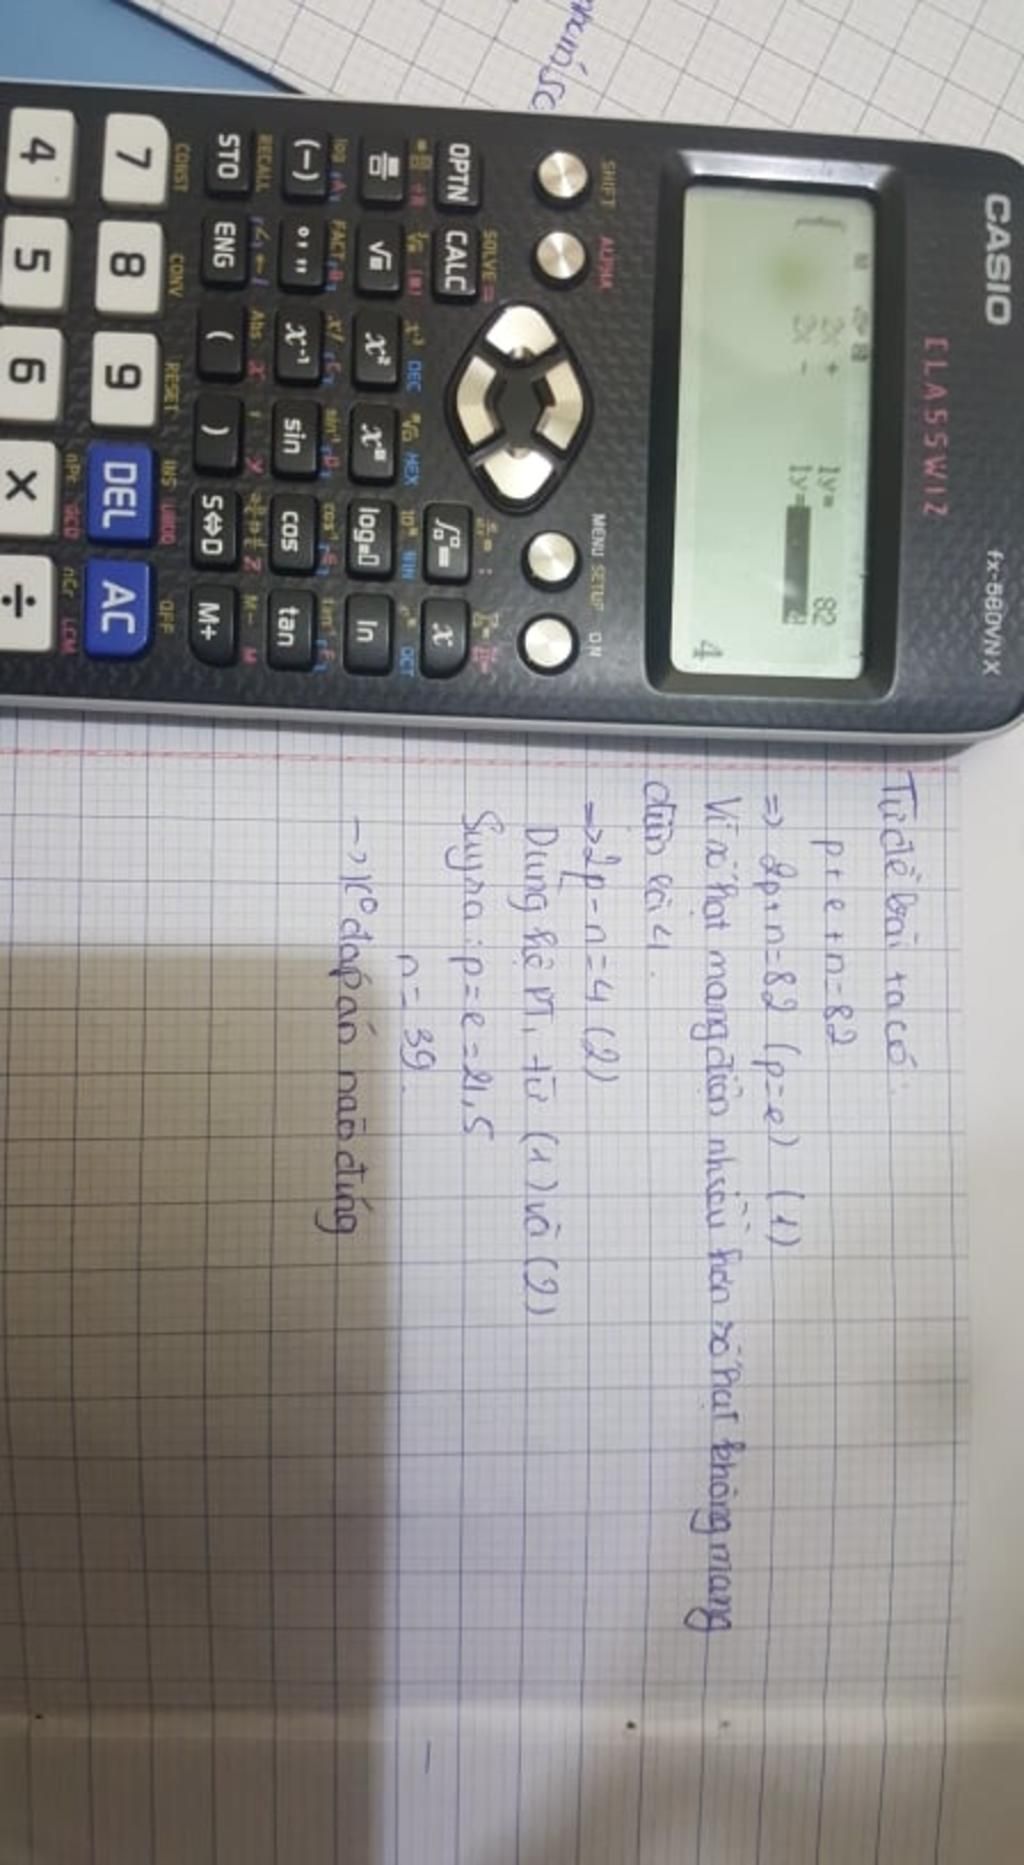 CASIO
fx-580VN X
CLASSWIZ
2x + 1y= 82
2x - 1y=
4
SHIFT ALPHA MENU SETUP ON
OPTN CALC SOLVE =
x
√ x² log ln
(-) x⁻¹ sin cos tan
STO ENG ( ) S⇔D M+
RECALL Abs M- M
CONST CONV RESET INS OFF
7 8 9 DEL AC
nPr GCD nCr LCM
4 5 6 × ÷
Từ đề bài ta có
p+e+n=82
=> 2p+n=82 (p=e) (1)
Vì số hạt mang điện nhiều hơn số hạt không mang
điện là 4.
=> 2p-n=4 (2)
Dùng hệ PT, từ (1) và (2)
Suy ra: p=e=21,5
n=39.
-> K° đáp án nào đúng